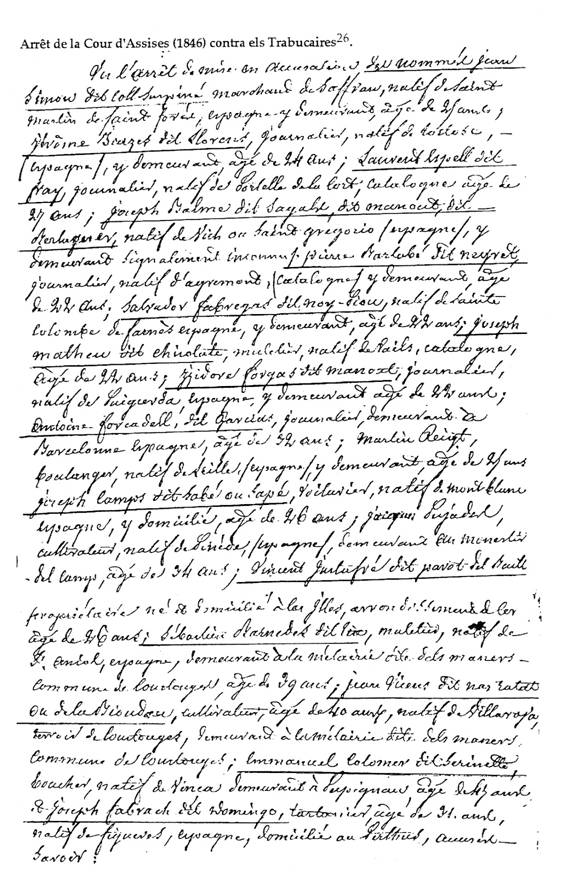 Arrêt de la Cour d'Assises (1846) contra els Trabucaires26.
Vu l'arrêt de mise en accusation des nommés jean
Simon dit coll suspiné marchand de saffran, natif de Saint
martin de saint , espagne y demeurant, âgé de ans ;
jérôme dit llorens, journalier, natif de , —
(espagne), y demeurant âgé de 24 ans ; Laurent Espell dit
fray, journalier, natif de de la , catalogne âgé de
27 ans ; joseph Balme dit Sagals, dit manout, dit —
, natif de Vich ou Saint gregorio (espagne), y
demeurant signalement inconnu ; pierre Barlabé dit negret,
journalier, natif d'agremont, (catalogne) y demeurant, âgé
de 22 ans, Salvador fabregas dit noy- , natif de Sainte
colombe de farnés espagne, y demeurant, âgé de 22 ans ; joseph
matheu dit chicolate, muletier, natif de , catalogne,
âgé de 22 ans ; izidore forgas dit manoat, journalier,
natif de Puigcerda espagne, y demeurant âgé de ans ;
Antoine forcadell, dit garcias, journalier, demeurant à
Barcelonne espagne, âgé de 32 ans ; Martin Reigt,
boulanger, natif de , (espagne), y demeurant âgé de ans
joseph camps dit ou , voiturier, natif de mont blanc
espagne, y domicilié, âgé de 26 ans ; jacques Pujadas,
cultivateur, natif de , (espagne), demeurant au monastir
del camp, âgé de 34 ans ; Vincent Justafré dit parot del
propriétaire né et domicilié à las Illas, arrondissement de
âgé de 46 ans ; Sébastien Barnedes dit , muletier, natif de
St. aniol, espagne, demeurant à la métairie dite dels maners —
commune de coustouges, âgé de 39 ans ; jean Vicens dit nas ratat
ou de la , cultivateur, âgé de 40 ans, natif de Villaroja,
terroir de coustouges, demeurant à la métairie dite dels maners,
commune de coustouges ; Emmanuel Colomer dit ,
boucher, natif de Vinca demeurant à Perpignan âgé de ans
et joseph fabrach dit domingo, , âgé de 31 ans,
natif de figueres, espagne, domicilié au Perthus, accusés —
Savoir :